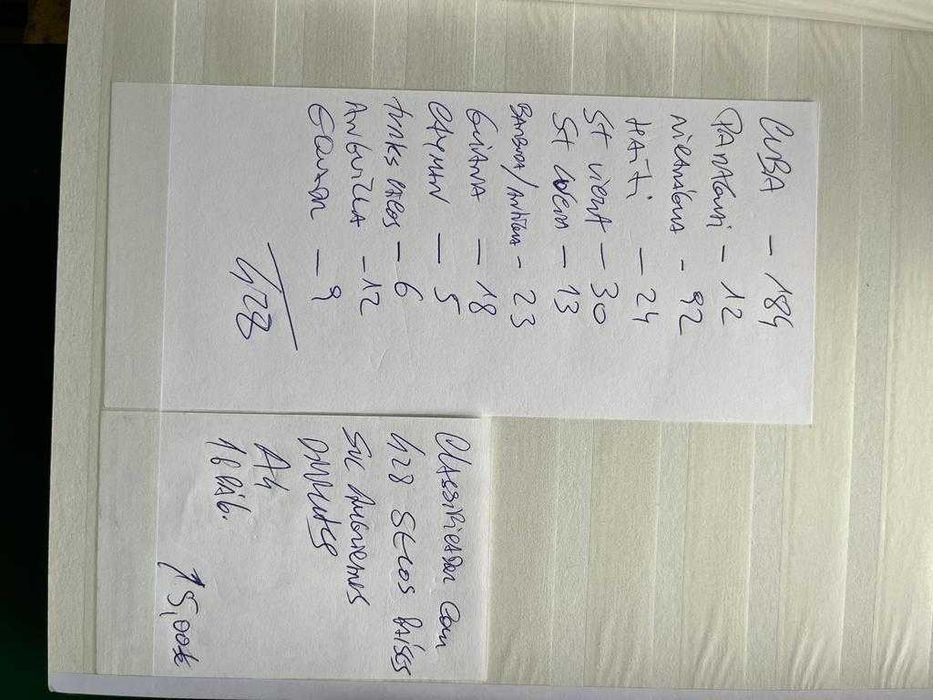 CUBA - 184
PARAGUAI - 12
NICARÁGUA - 92
HAITI - 24
ST VICENT - 30
ST LUCIA - 13
BARBUDA/ANTIGUA - 23
GUIANA - 18
CAYMAN - 5
TURKS CAICOS - 6
ANGUILLA - 12
- 9
428
CLASSIFICADOR COM
428 SELOS PAÍSES
SUL AMERICANOS
A4
16 PÁG.
15,00€